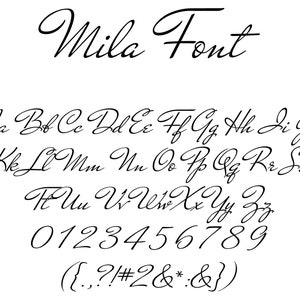 Mila Font
a Bb Cc Dd Ee Ff Gg Hh Ii
Kk Ll Mm Nn Oo Pp Qq Rr S
Tt Uu Vv Ww Xx Yy Zz
0 1 2 3 4 5 6 7 8 9
({.,?!#2&*:&})